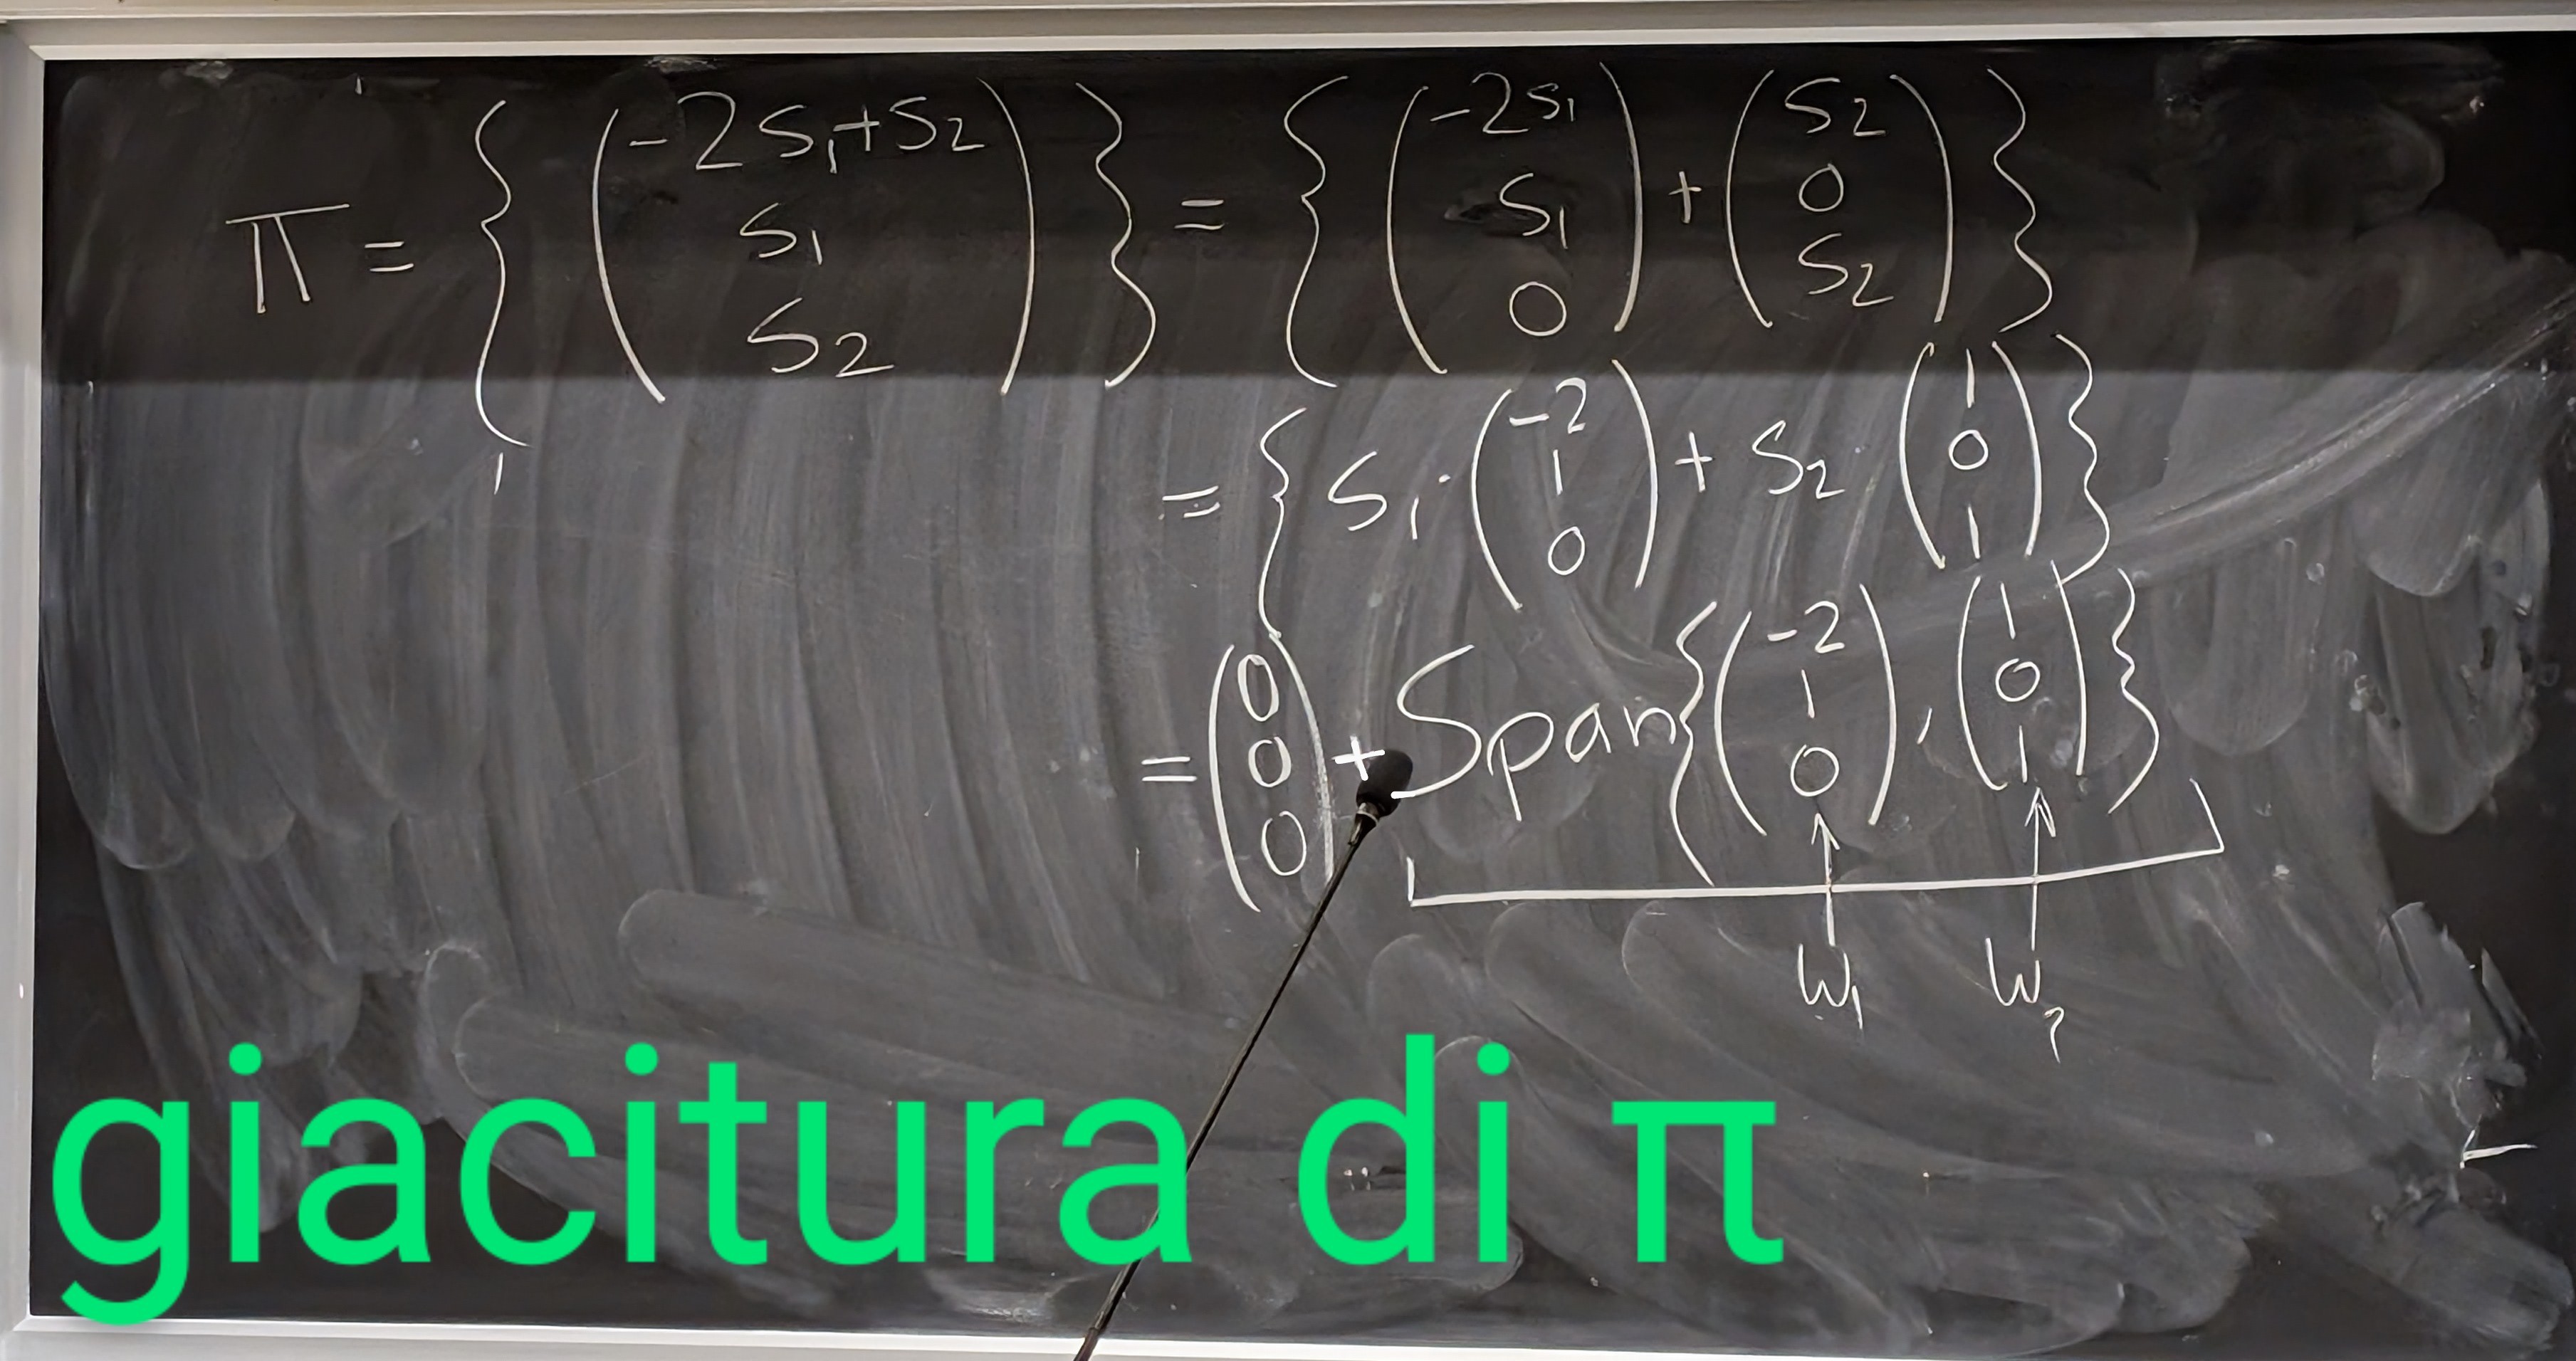 π = { ( -2s₁+s₂ s₁ s₂ ) } = { ( -2s₁ s₁ 0 ) + ( s₂ 0 s₂ ) }
= { s₁· ( -2 1 0 ) + s₂ ( 1 0 1 ) }
= ( 0 0 0 ) + Span { ( -2 1 0 ) , ( 1 0 1 ) }
w₁ w₂
giacitura di π